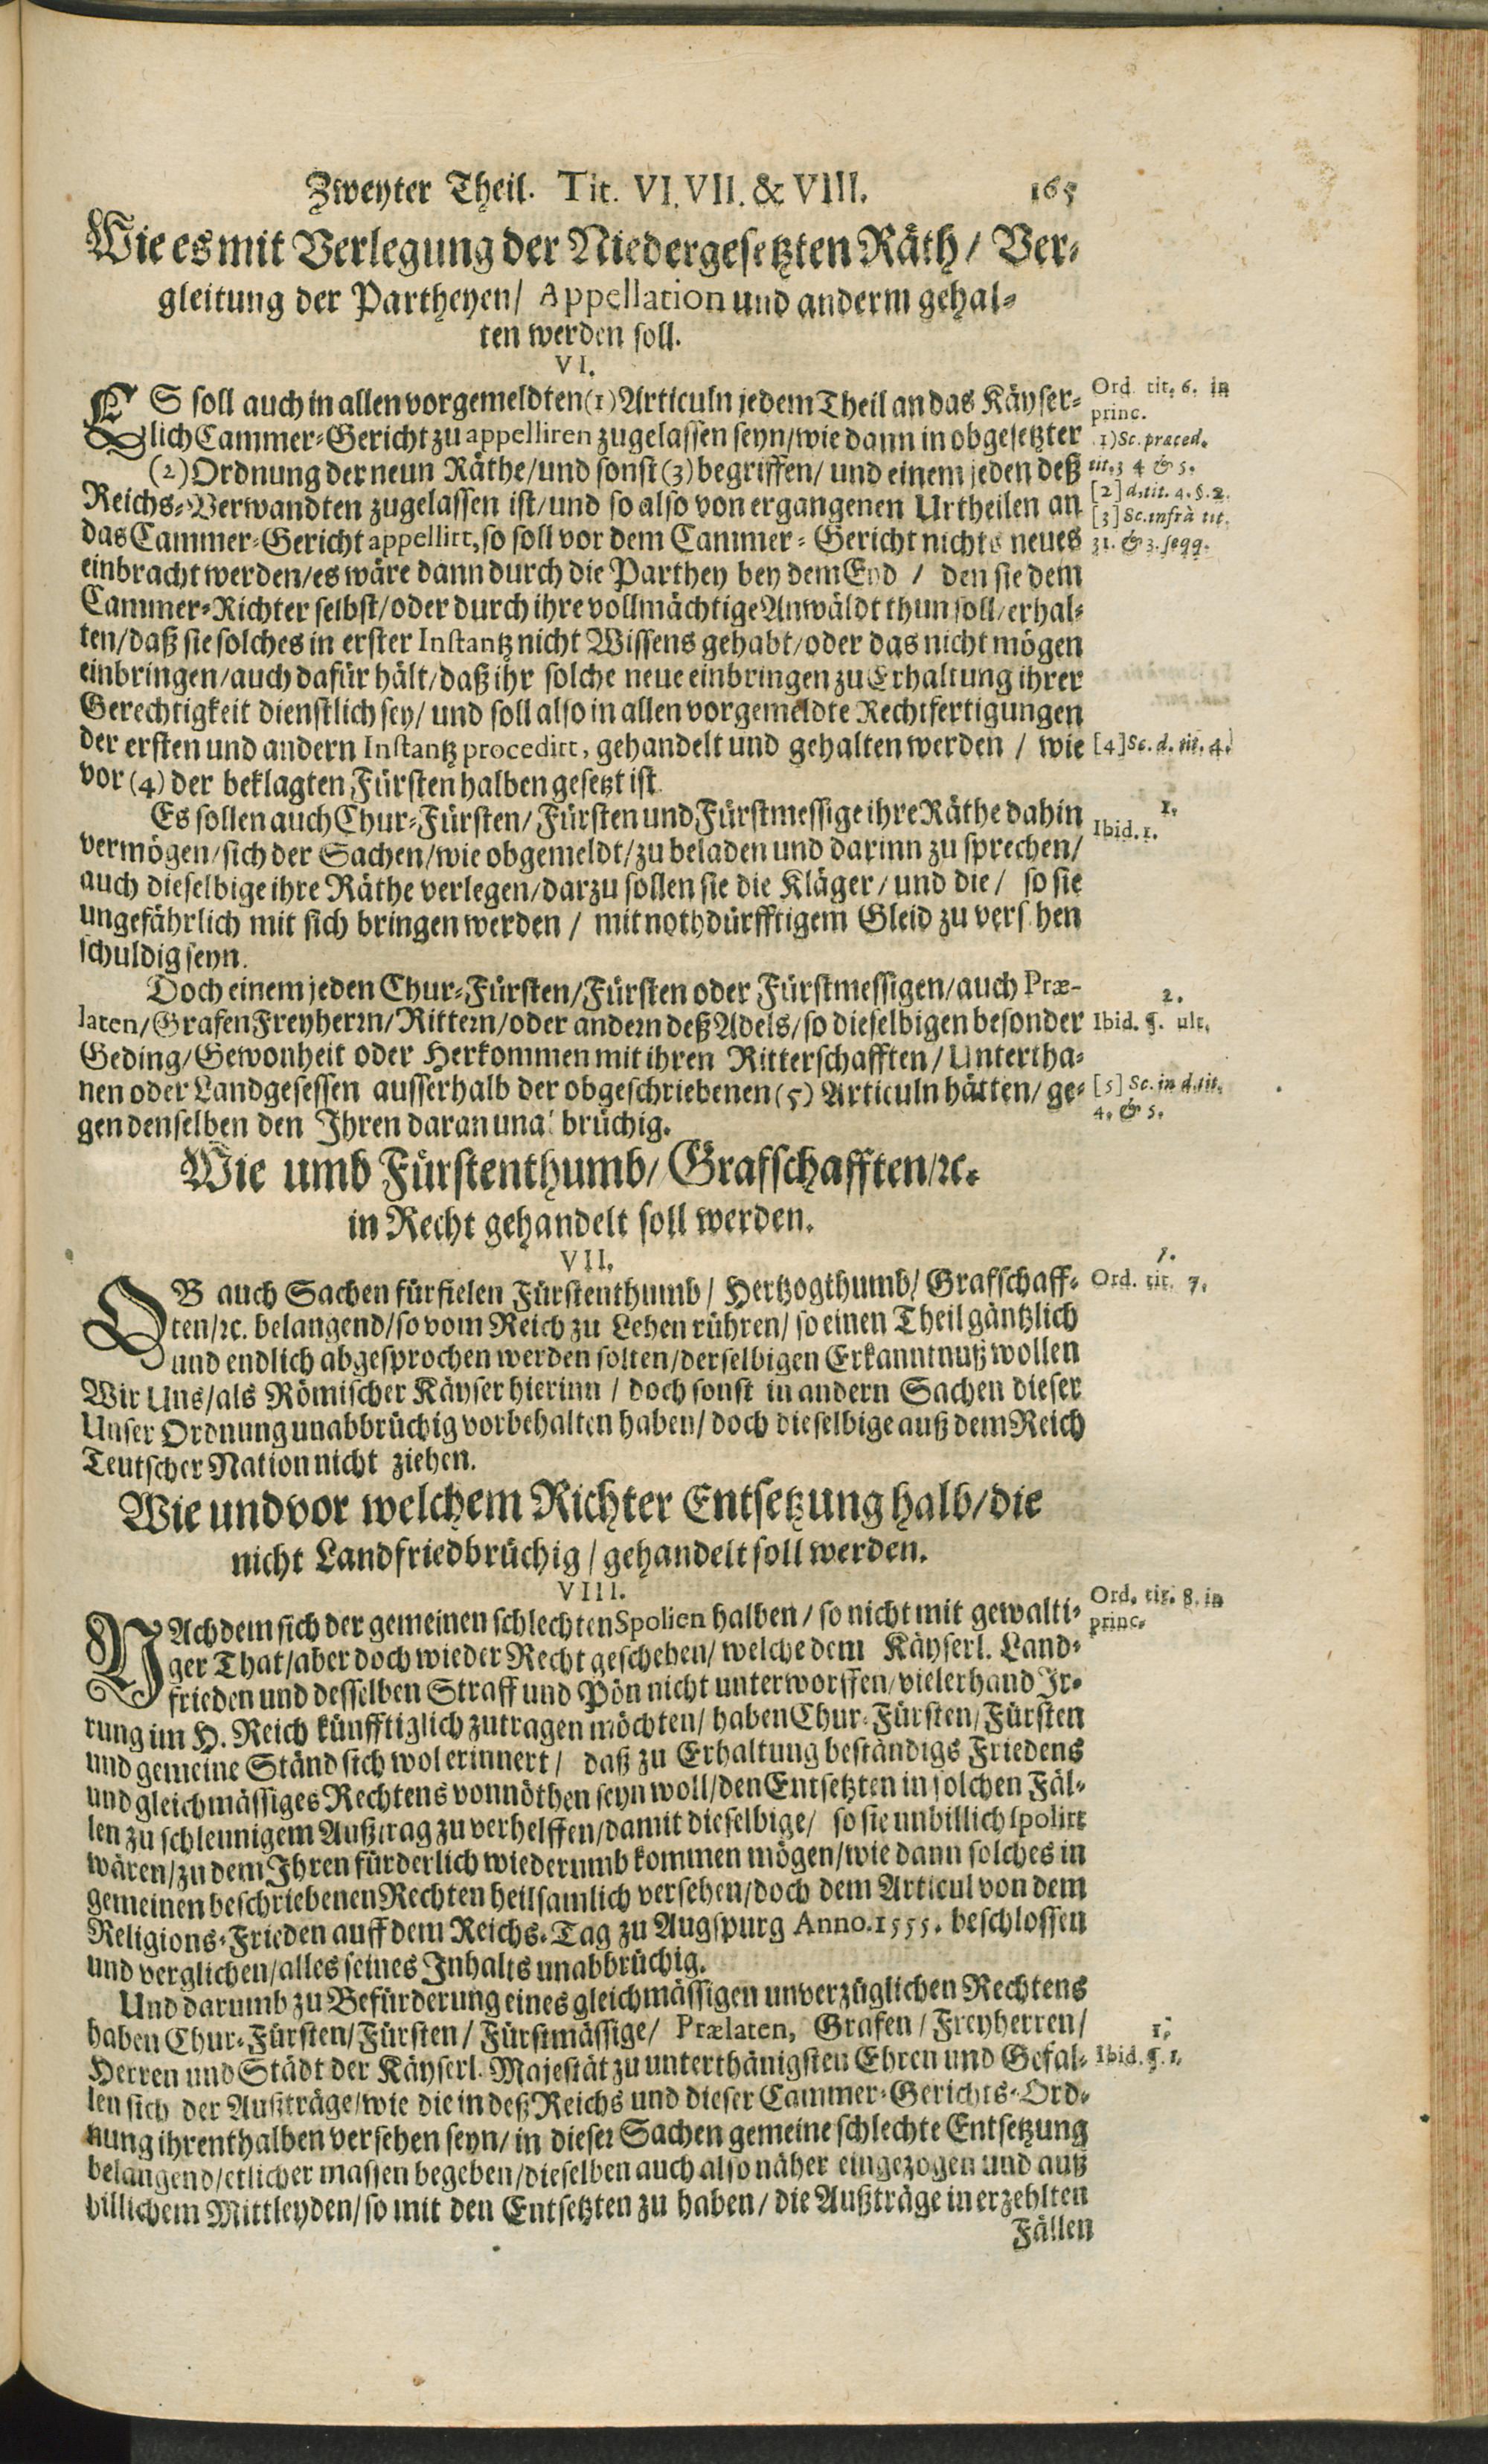 Zweyter Theil. Tit. VI. VII. & VIII. 165
Wie es mit Verlegung der Niedergesetzten Räth / Ver-
gleitung der Partheyen / Appellation und anderm gehal-
ten werden soll.
VI.
ES soll auch in allen vorgemeldten (1) Articuln jedem Theil an das Käyser-
lich Cammer-Gericht zu appelliren zugelassen seyn / wie dann in obgesetzter
(2) Ordnung der neun Räthe / und sonst (3) begriffen / und einem jeden deß
Reichs-Verwandten zugelassen ist / und so also von ergangenen Urtheilen an
das Cammer-Gericht appellirt, so soll vor dem Cammer-Gericht nichts neues
einbracht werden / es wäre dann durch die Parthey bey dem Eyd / den sie dem
Cammer-Richter selbst / oder durch ihre vollmächtige Anwäldt thun soll / erhal-
ten / daß sie solches in erster Instantz nicht Wissens gehabt / oder das nicht mögen
einbringen / auch dafür hält / daß ihr solche neue einbringen zu Erhaltung ihrer
Gerechtigkeit dienstlich sey / und soll also in allen vorgemeldte Rechtfertigungen
der ersten und andern Instantz procedirt, gehandelt und gehalten werden / wie
vor (4) der beklagten Fürsten halben gesetzt ist.
Es sollen auch Chur-Fürsten / Fürsten und Fürstmessige ihre Räthe dahin
vermögen / sich der Sachen / wie obgemeldt / zu beladen und darinn zu sprechen /
auch dieselbige ihre Räthe verlegen / darzu sollen sie die Kläger / und die / so sie
ungefährlich mit sich bringen werden / mit nothdürfftigem Gleid zu vers hen
schuldig seyn.
Doch einem jeden Chur-Fürsten / Fürsten oder Fürstmessigen / auch Præ-
laten / Grafen Freyherrn / Rittern / oder andern deß Adels / so dieselbigen besonder
Geding / Gewonheit oder Herkommen mit ihren Ritterschafften / Untertha-
nen oder Landgesessen ausserhalb der obgeschriebenen (5) Articuln hätten / ge-
gen denselben den Ihren daran una brüchig.
Wie umb Fürstenthumb / Grafschafften / ꝛc.
in Recht gehandelt soll werden.
VII.
OB auch Sachen fürfielen Fürstenthumb / Hertzogthumb / Grafschaff-
ten / ꝛc. belangend / so vom Reich zu Lehen rühren / so einen Theil gäntzlich
und endlich abgesprochen werden solten / derselbigen Erkanntnuß wollen
Wir Uns / als Römischer Käyser hierinn / doch sonst in andern Sachen dieser
Unser Ordnung unabbrüchig vorbehalten haben / doch dieselbige auß dem Reich
Teutscher Nation nicht ziehen.
Wie und vor welchem Richter Entsetzung halb / die
nicht Landfriedbrüchig / gehandelt soll werden.
VIII.
NAchdem sich der gemeinen schlechten Spolien halben / so nicht mit gewalti-
ger That / aber doch wieder Recht geschehen / welche dem Käyserl. Land-
frieden und desselben Straff und Pön nicht unterworffen / vielerhand Ir-
rung im H. Reich künfftiglich zutragen möchten / haben Chur-Fürsten / Fürsten
und gemeine Ständ sich wol erinnert / daß zu Erhaltung beständigs Friedens
und gleichmässiges Rechtens vonnöthen seyn woll / den Entsetzten in solchen Fäl-
len zu schleunigem Außtrag zu verhelffen / damit dieselbige / so sie unbillich spolirt
wären / zu dem Ihren fürderlich wiederumb kommen mögen / wie dann solches in
gemeinen beschriebenen Rechten heilsamlich versehen / doch dem Articul von dem
Religions-Frieden auff dem Reichs-Tag zu Augspurg Anno. 1555. beschlossen
und verglichen / alles seines Inhalts unabbrüchig.
Und darumb zu Befürderung eines gleichmässigen unverzüglichen Rechtens
haben Chur-Fürsten / Fürsten / Fürstmässige / Prælaten, Grafen / Freyherren /
Herren und Städt der Käyserl. Majestät zu unterthänigsten Ehren und Gefal-
len sich der Außträge / wie die in deß Reichs und dieser Cammer-Gerichts-Ord-
nung ihrenthalben versehen seyn / in dieser Sachen gemeine schlechte Entsetzung
belangend / etlicher massen begeben / dieselben auch also näher eingezogen und auß
billichem Mittleyden / so mit den Entsetzten zu haben / die Außträge in erzehlten
Fällen
Ord. tit. 6. in
princ.
1) Sc. præced.
tit. 3 4 & 5.
[2] d. tit. 4. §. 2.
[3] Sc. infrà tit.
31. & 3. seqq.
[4] Sc. d. tit. 4.
1.
Ibid. 1.
2.
Ibid. ¶. ult.
[5] Sc. in d. tit.
4. & 5.
1.
Ord. tit. 7.
Ord. tit. 8. in
princ.
1.
Ibid. ¶. 1.